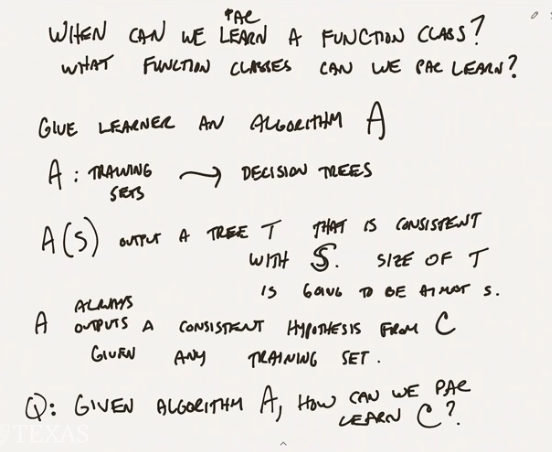 WHEN CAN WE PAC LEARN A FUNCTION CLASS?
WHAT FUNCTION CLASSES CAN WE PAC LEARN?
GIVE LEARNER AN ALGORITHM A
A : TRAINING SETS → DECISION TREES
A(S) OUTPUT A TREE T THAT IS CONSISTENT
WITH S. SIZE OF T
IS GOING TO BE AT MOST S.
A ALWAYS OUTPUTS A CONSISTENT HYPOTHESIS FROM C
GIVEN ANY TRAINING SET.
Q: GIVEN ALGORITHM A, HOW CAN WE PAC
LEARN C?
TEXAS